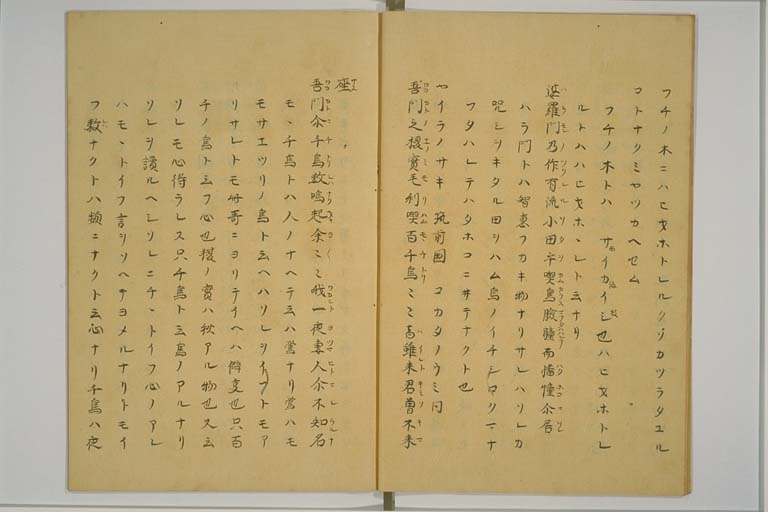 フチノ木ニハヒホトレルクソカツラタユル
コトナクミヤツカヘセム
フチノ木トハ サイカイシ也ハヒホトレ
ルトハハヒホトレト云ナリ
婆羅門乃作有流小田乎喫烏瞼腫而幡幢尓居
ハラ門トハ智恵フカキ物ナリサレハソレカ
呪シヲキタル田シハム烏ノイチシロクマナ
フタハレテハタホコニ井テナクト也
ヤイラノサキ 筑前国 コカタノウミ同
吾門之榎實毛利喫百千鳥ミミ者雖来君曽不来
座
吾門尓千鳥数鳴起余ミミ我一夜妻人尓不知名
モヽチ鳥トハ人ノナヘテ云ハ鶯ナリ鶯ハモ
モサエツリノ鳥ト云ヘハソレヲイフトモア
リサレトモ毋哥ニヨリテイヘハ僻変也只百
チノ鳥ト云フ心也榎ノ實ハ秋アル物也又云
ソレモ心待ラレス只千鳥ト云鳥ノアルナリ
ソレヲ讀ルヘシソレニチヽトイフ心ノアレ
ハモヽトイフ言シソヘテヨメルナリトモイ
フ数ナクトハ頻ニナクト云心ナリ千鳥ハ夜